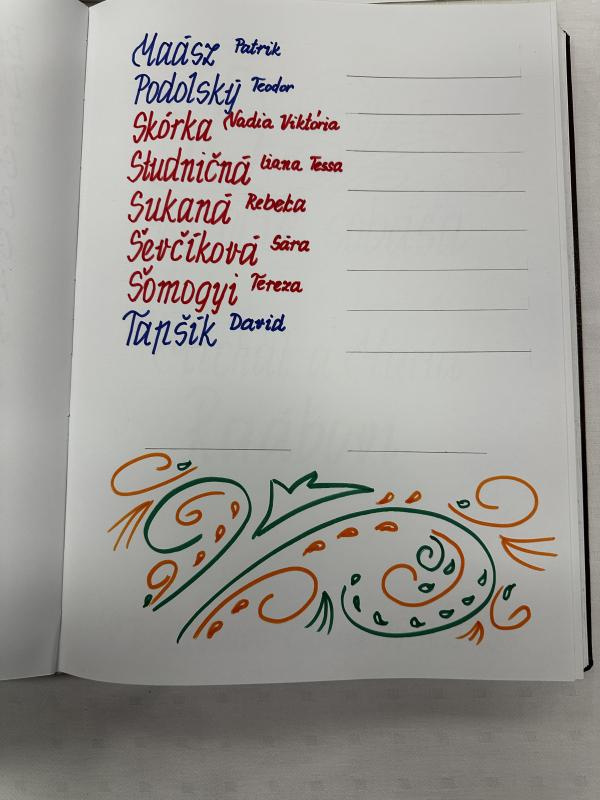 Maász Patrik
Podolský Teodor
Skórka Nadia Viktória
Studničná Liana Tessa
Sukaná Rebeka
Ševčíková Sára
Šomogyi Tereza
Tapšík David